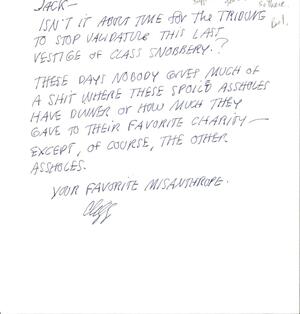 JACK—
ISN'T IT ABOUT TIME FOR THE TRIBUNE
TO STOP VALIDATING THIS LAST
VESTIGE OF CLASS SNOBBERY?
THESE DAYS NOBODY GIVES MUCH OF
A SHIT WHERE THESE SPOILED ASSHOLES
HAVE DINNER OR HOW MUCH THEY
GAVE TO THEIR FAVORITE CHARITY—
EXCEPT, OF COURSE, THE OTHER
ASSHOLES.
YOUR FAVORITE MISANTHROPE.